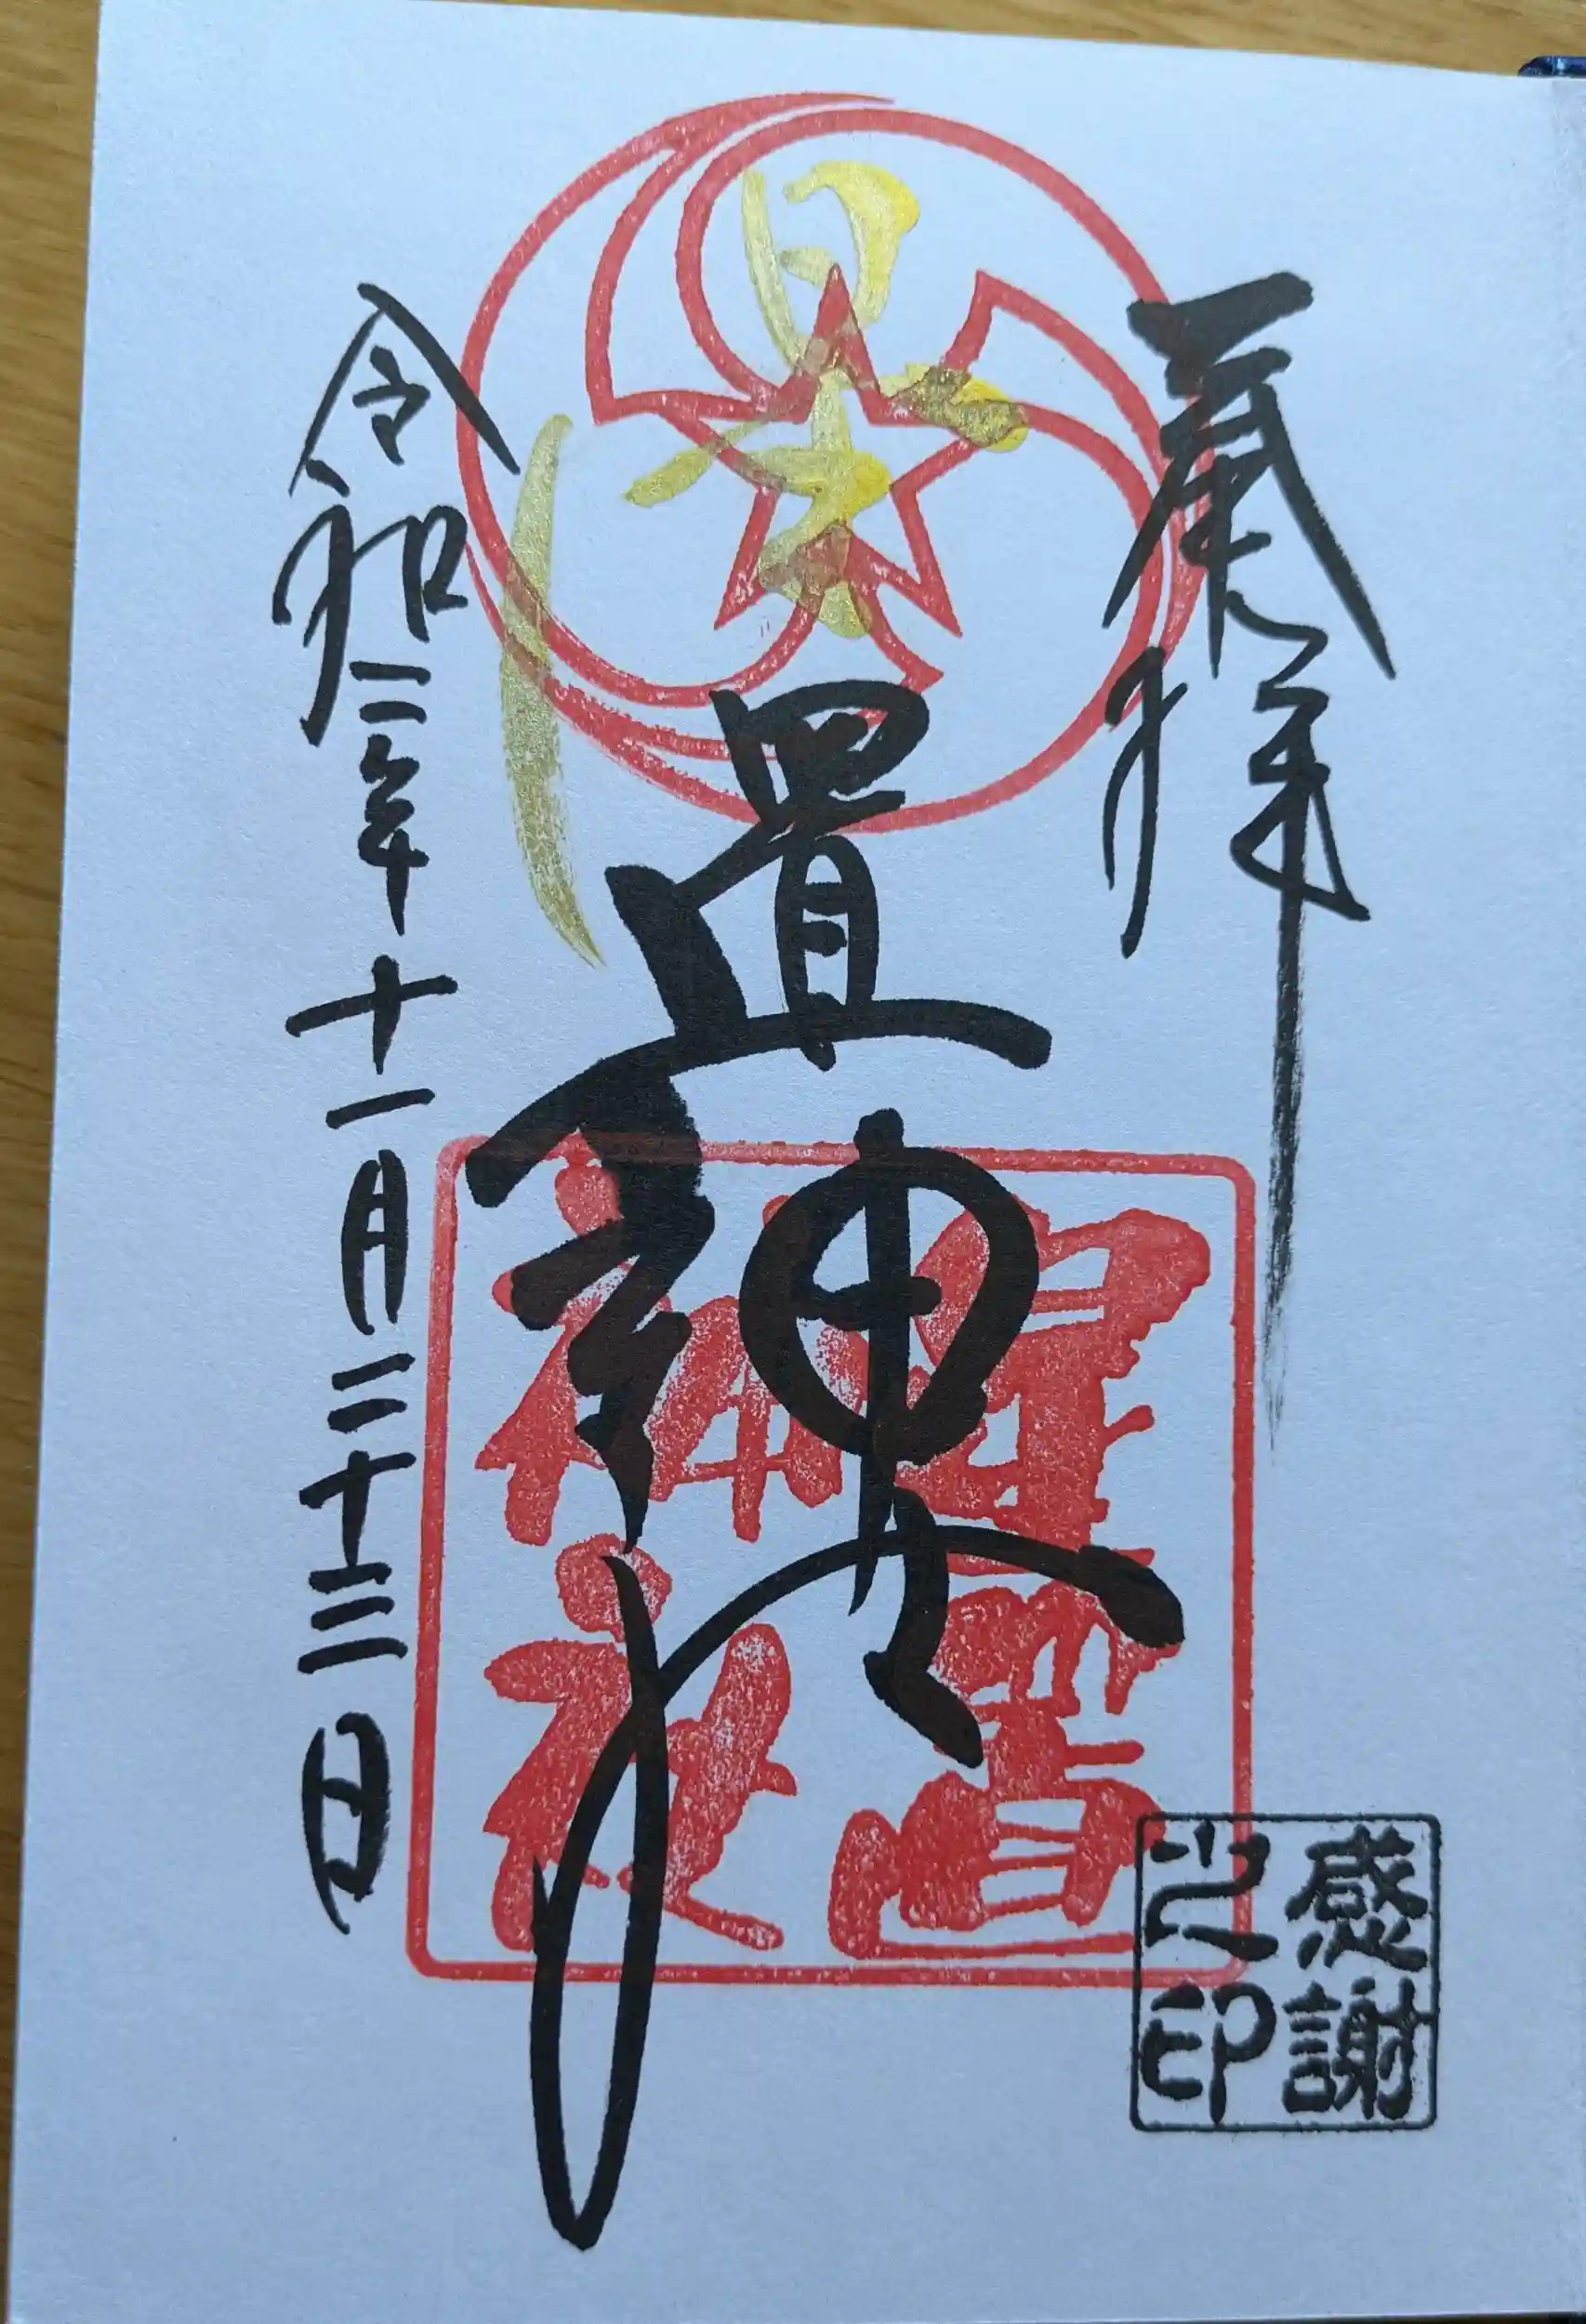 奉拝
星置神社
令和二年十一月二十三日
星置
神社
感謝
之印